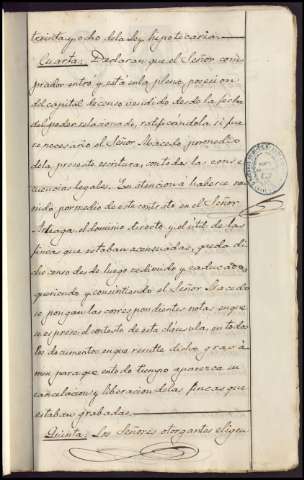 treinta y ocho de la Ley hipotecaria.
Cuarta: Declaran que el Señor com-
prador entró y está en la plena posesion
del capital de censo vendido desde la fecha
del poder relacionado, ratificándola si fue-
se necesario el Señor Macedo por medio
de la presente escritura, con todas las conse-
cuencias legales. En atencion á haberse reu-
nido por medio de este contrato en el Señor
Arteaga, el dominio directo, y el útil de las
fincas que estaban acensuadas, queda di-
cho censo desde luego redimido y caducado,
queriendo y consintiendo el Señor Macedo
se pongan las correspondientes notas en que
se esprese el contesto de esta cláusula, en todos
los documentos en que resulte dicho gravá-
men para que en todo tiempo aparezca su
cancelacion y liberacion de las fincas que
estaban grabadas.
Quinta: Los Señores otorgantes eligen